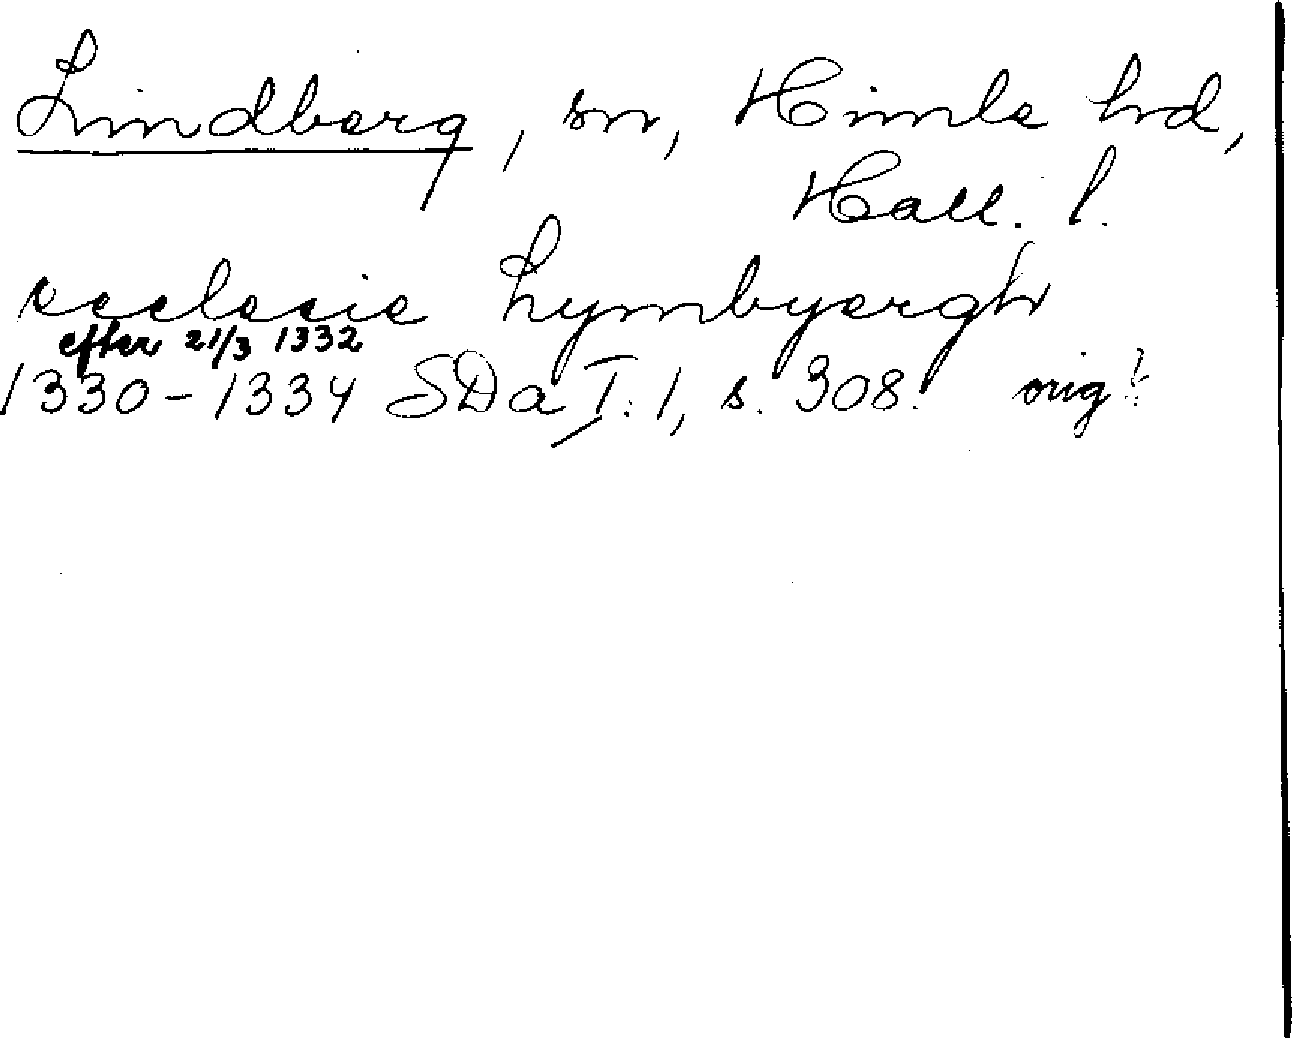 Lindberg, sn, Himle hd,
Hall. l.
ecclesie Lymbyergh
efter 21/3 1332
1330-1334 SDa I:1, s. 308. orig!